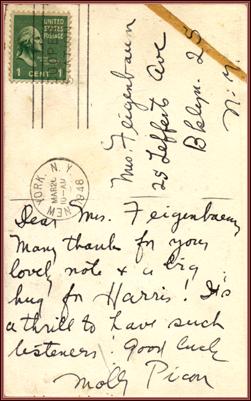 UNITED STATES
POSTAGE
1 CENT 1
NEW YORK, N.Y.
1948
Mrs. Feigenbaum
25 Lefferts Ave
Bklyn. 25
N.Y.
Dear Mrs. Feigenbaum,
Many thanks for your
lovely note & a big
hug for Harris! It's
a thrill to have such
listeners! Good luck
Molly Picon